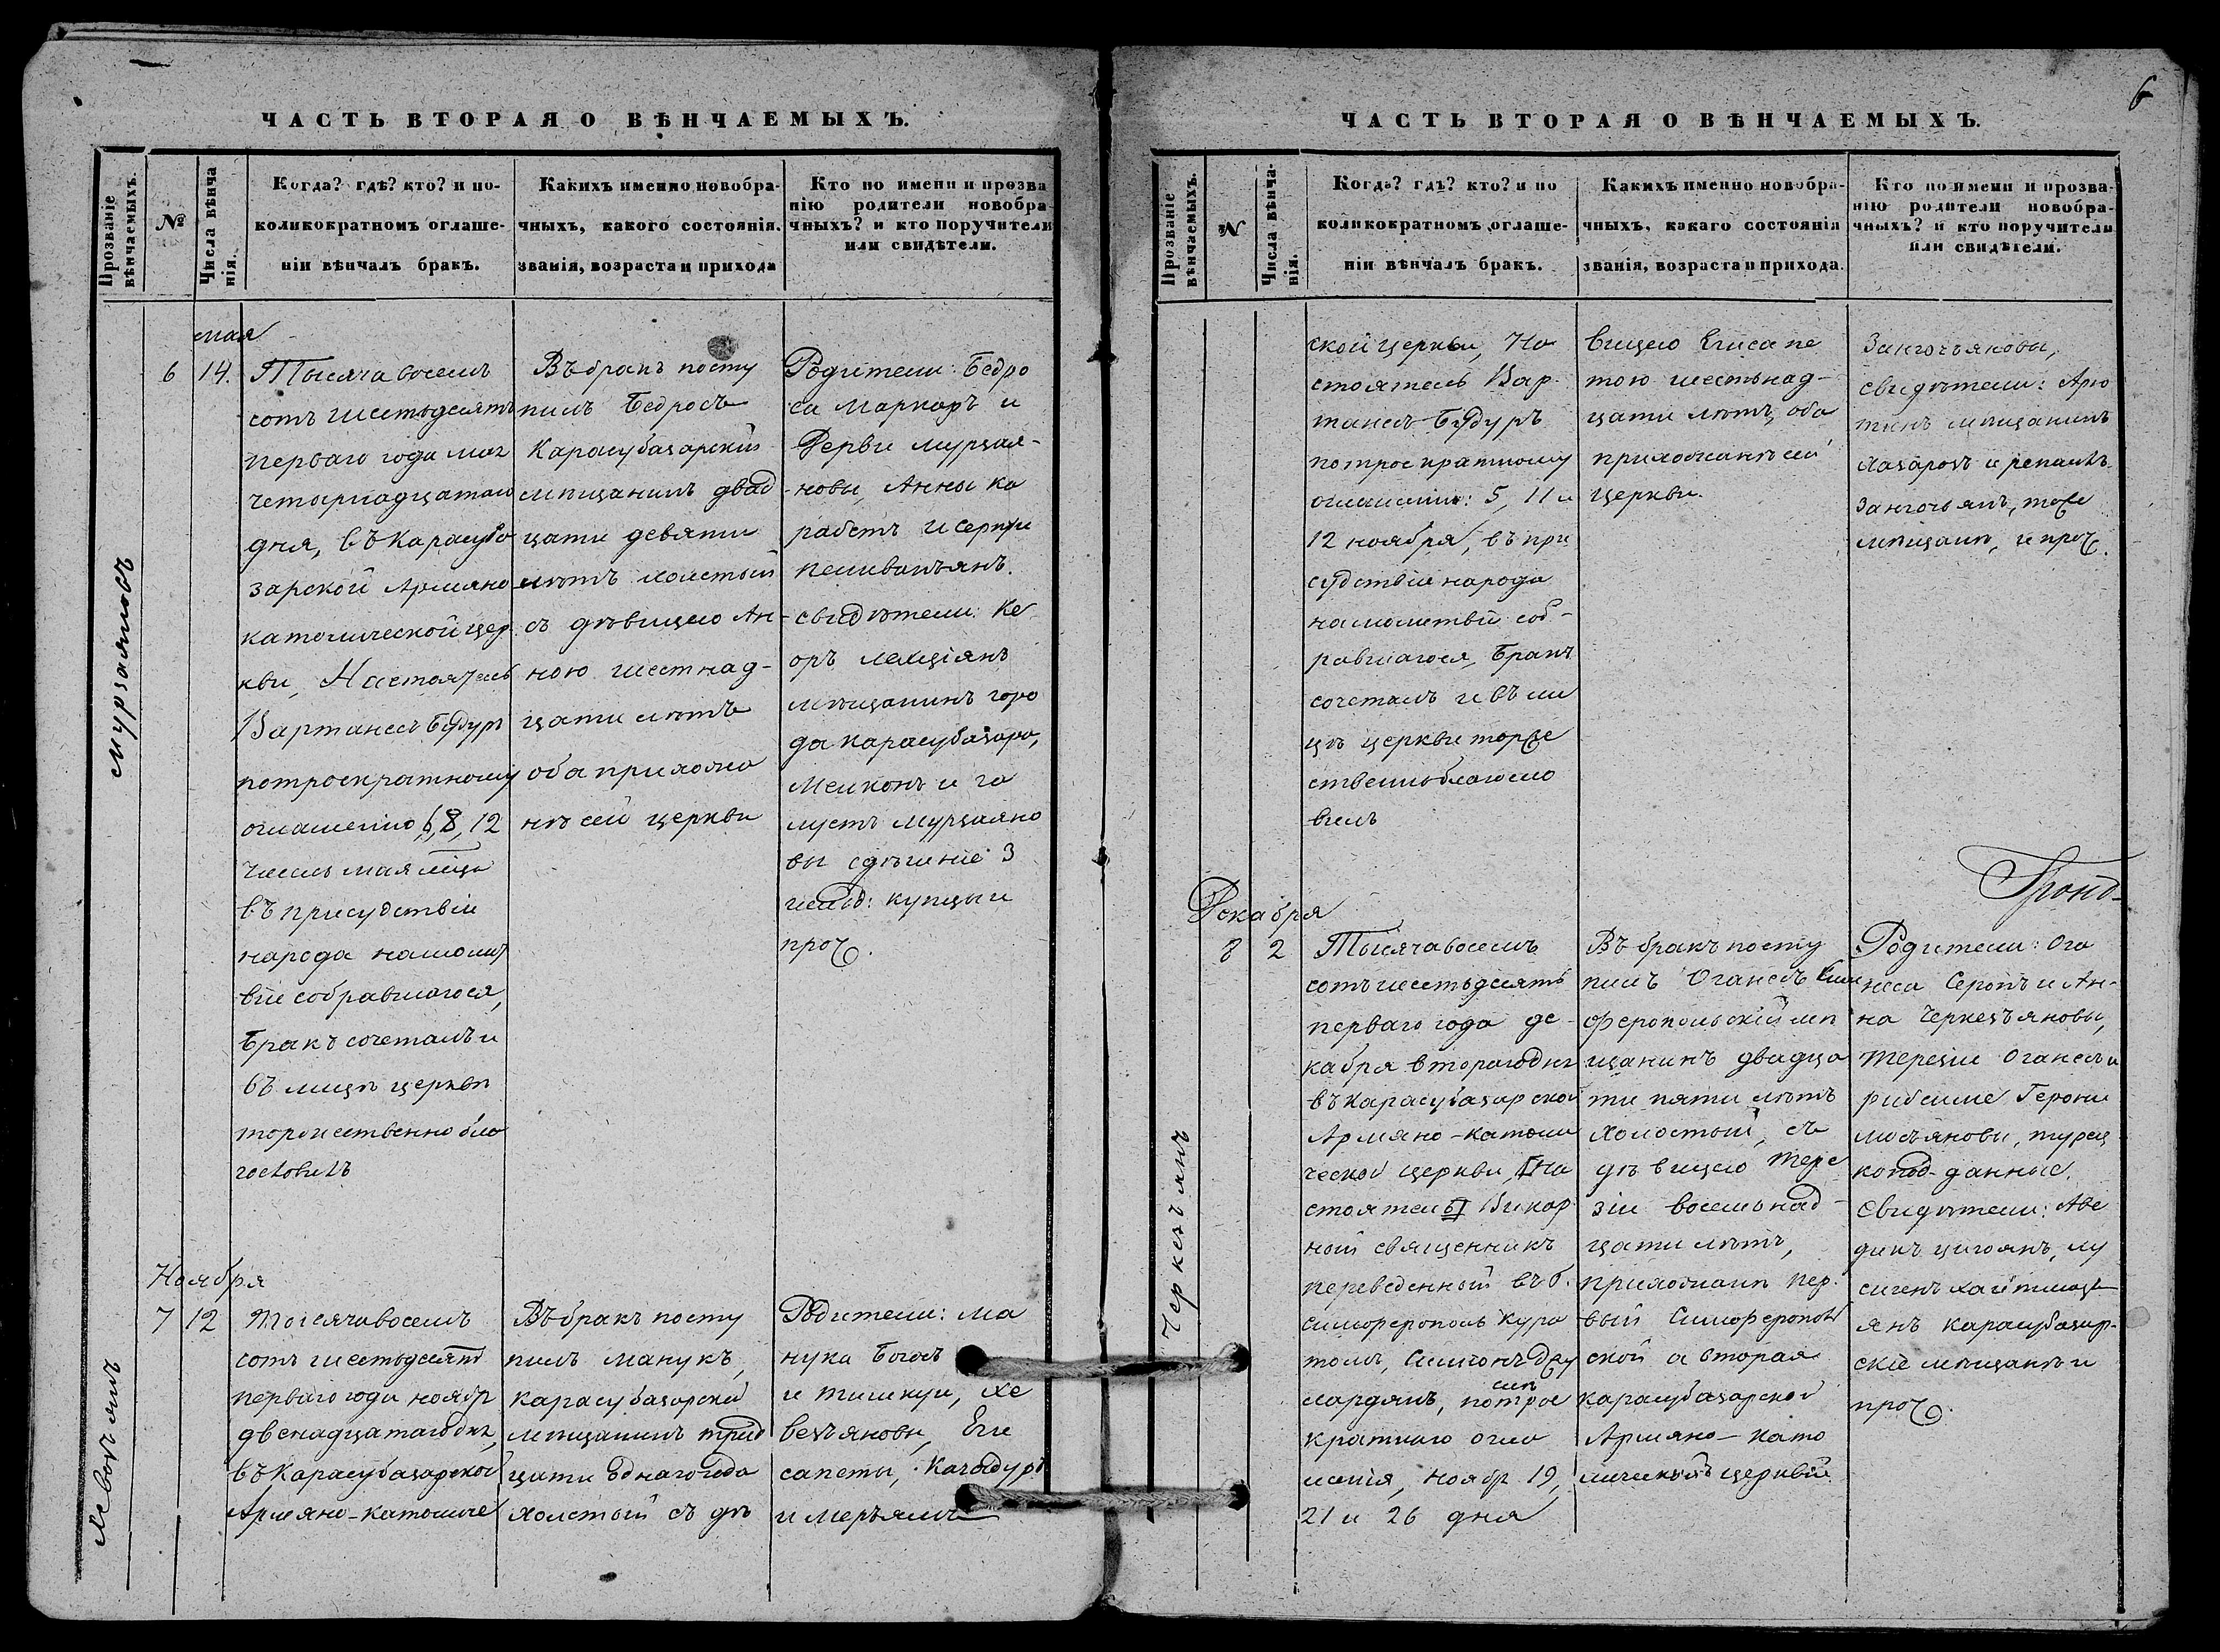 ЧАСТЬ ВТОРАЯ О ВѢНЧАЕМЫХЪ.
Прозваніе
вѣнчаемыхъ.
№
Числа вѣнча
нія.
Когда? гдѣ? кто? и по-
коликократномъ оглаше-
ніи вѣнчалъ бракъ.
Какихъ именно новобра-
чныхъ, какого состоянія.
званія, возраста и прихода
Кто по имени и прозва
нію родители новобра
чныхъ? и кто поручители
или свидѣтели.
Мурзаяновъ
мая
6
14.
Тысяча восемь
сотъ шестьдесятъ
перваго года мая
четырнадцатаго
дня, въ Карасуба
зарской Армяно
католической цер
кви, Настоятель
Вартанесъ Бодуръ
потроекратному
оглашенію 6, 8, 12
чиселъ мая мца
въ присудствіи
народа намолит
віе собравшагося,
бракъ сочеталъ и
въ лицѣ церкви
торжественно бла
гословилъ
Въ бракъ посту
пилъ Бедросъ
Карасубазарскій
мѣщанинъ двад
цати девяти
лѣтъ холостый
съ дѣвицею Ан-
ною шестнад-
цати лѣтъ
оба прихожа
нѣ сей церкви
Родители: Бедро
са Маркаръ и
Дерви Мурзая-
новы, Анны Ка
рабетъ и Серпуи
свидѣтели: Ке
оръ
мѣщанинъ горо
да Карасубазара,
Мелконъ и Га
лустъ Мурзаяно
вы 3
гильд: купцы и
проч.
Ноября
Левонъянъ
7
12
Тысяча восемь
сотъ шестьдесятъ
перваго года ноябр
двенадцатаго дня,
въ Карасубазарской
Армяно-католиче
Въ бракъ посту
пилъ Манукъ,
Карасубазарскій
мѣщанинъ трид
цати однаго года
холстый съ дѣ
Родители: Ма
нука Богосъ
Ели
сапеты,
и Меръямъ
6
ЧАСТЬ ВТОРАЯ О ВѢНЧАЕМЫХЪ.
Прозваніе
вѣнчаемыхъ.
№
Числа вѣнча-
нія.
Когда? гдѣ? кто? и по
коликократномъ оглаше-
ніи вѣнчалъ бракъ.
Какихъ именно новобра-
чныхъ, какаго состоянія
званія, возраста и прихода.
Кто по имени и прозва-
нію родители новобра-
чныхъ? и кто поручители
или свидѣтели.
ской церкви, На
стоятель Вар
танесъ Бодуръ
потроекратному
оглашенію: 5, 11 и
12 ноября, въ при
судствіи народа
намолитвіи соб-
равшагося, бракъ
сочеталъ и въ ли
цѣ церкви торже
ственно благосло
вилъ
вицею Елисапе
тою шестьнад-
цати лѣтъ, оба
прихожанѣ сей
церкви.
Зангочъяновы,
свидѣтели: Арю
тинъ мѣщанинъ
Лазаровъ и
Зангочьянъ, тоже
мѣщанѣ, и проч.
Декабря
Черкезъянъ
8
2
Тысяча восемь
сотъ шестьдесятъ
перваго года де-
кабря втораго дня
въ Карасубазарской
Армяно-католи
ческой церкви, На
стоятель Викар
ный священникъ
переведенный въ г.
Симферополь Кура
томъ, Симонъ
потрое
кратнаго огла
шенія, ноябр 19,
21 и 26 дня
Въ бракъ посту
пилъ Оганесъ Сим
феропольскій мѣ
щанинъ двадца
ти пяти лѣтъ
Холостый, съ
дѣвицею Тере
зіи восемьнад-
цати лѣтъ,
прихожанѣ пер-
вый Симферополь
ской а вторая
Карасубазарской
Армяно-като
лической церкви.
Родители: Ога
неса Серопъ и Ан-
на Черкезъяновы,
Терезіи Оганесъ и
Рибсиме
турец
коподданные.
Свидѣтели: Аве
дикъ
янъ Карасубазар-
скіе мѣщанѣ и
проч.